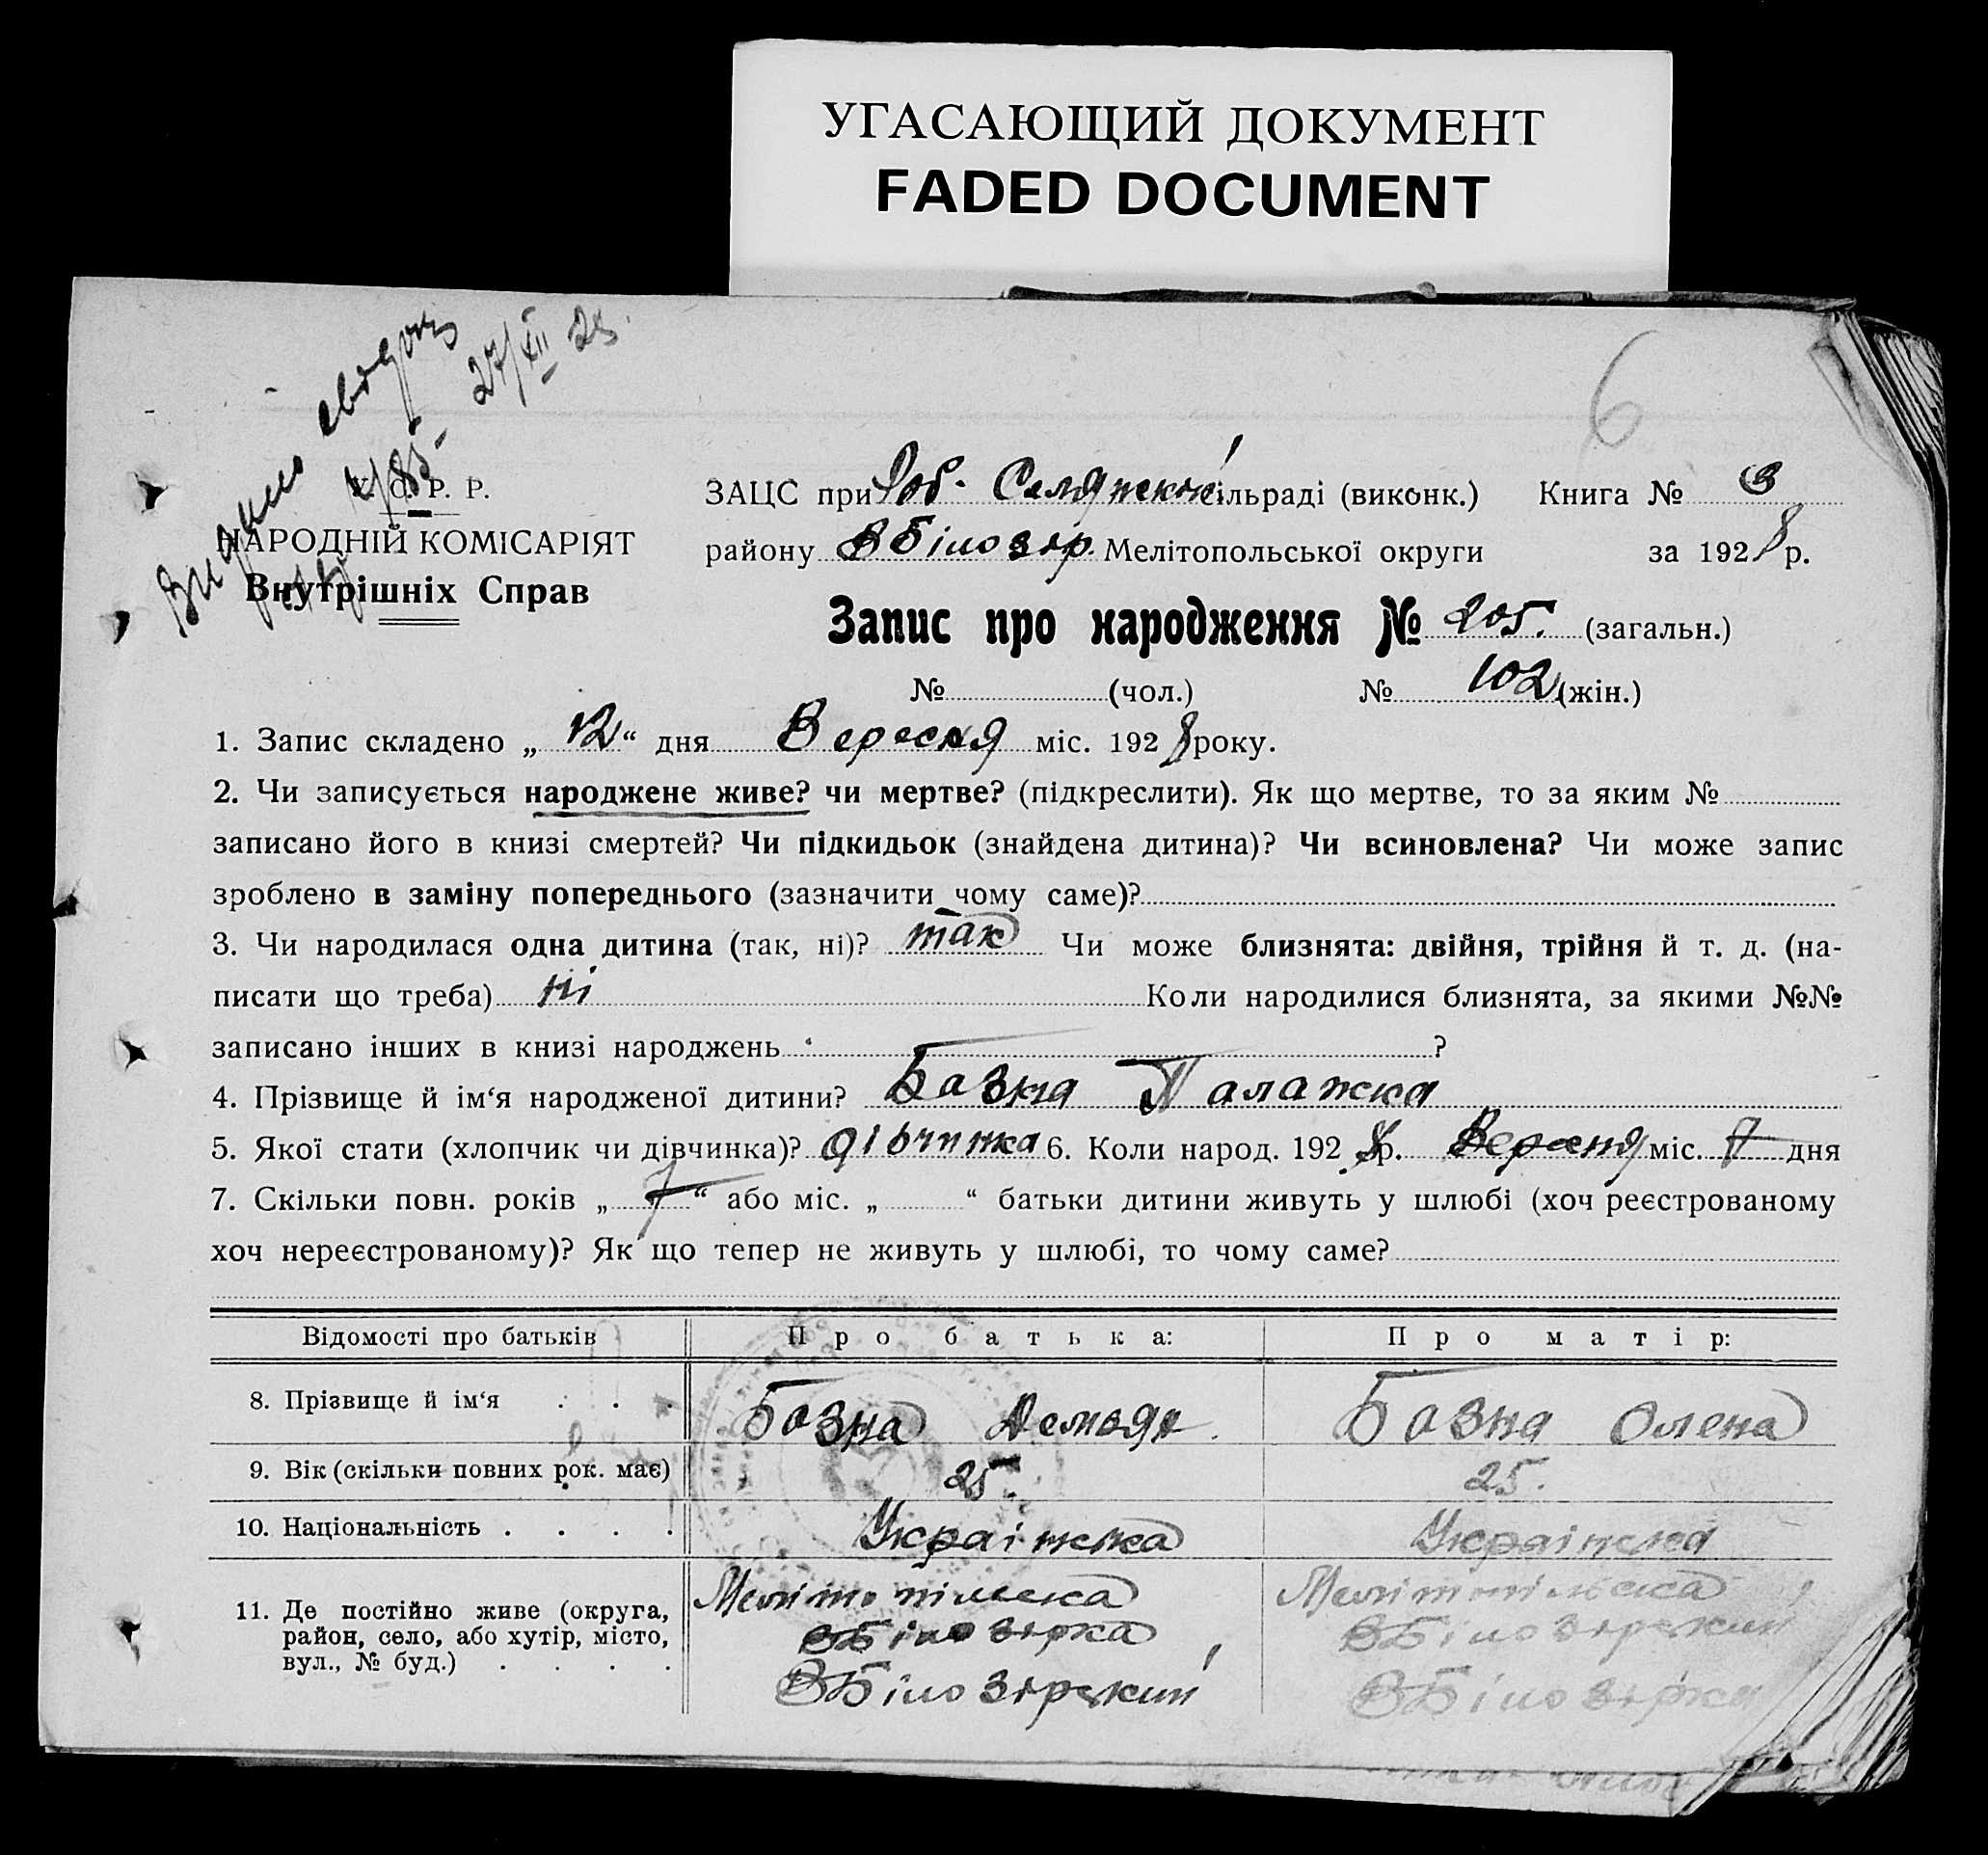 УГАСАЮЩИЙ ДОКУМЕНТ
FADED DOCUMENT
6
Видано
27/XII 28.
У. С. Р. Р.
НАРОДНІЙ КОМІСАРІЯТ
Внутрішніх Справ
ЗАЦС при Роб. Селянській сільраді (виконк.) Книга № 3
району ВБілозір. Мелітопольської округи за 1928 р.
Запис про народження № 205. (загальн.)
№ (чол.) № 102 (жін.)
1. Запис складено „12“ дня Вересня міс. 1928 року.
2. Чи записується народжене живе? чи мертве? (підкреслити). Як що мертве, то за яким №
записано його в книзі смертей? Чи підкидьок (знайдена дитина)? Чи всиновлена? Чи може запис
зроблено в заміну попереднього (зазначити чому саме)?
3. Чи народилася одна дитина (так, ні)? так Чи може близнята: двійня, трійня й т. д. (на-
писати що треба) ні Коли народилися близнята, за якими №№
записано інших в книзі народжень ?
4. Прізвище й ім‘я народженої дитини? Базна Палажка
5. Якої стати (хлопчик чи дівчинка)? дівчинка 6. Коли народ. 1928 р. Вересня міс. 7 дня
7. Скільки повн. років „7“ або міс. „ “ батьки дитини живуть у шлюбі (хоч реєстрованому
хоч нереєстрованому)? Як що тепер не живуть у шлюбі, то чому саме?
Відомості про батьків Про батька: Про матір:
8. Прізвище й ім‘я . . . Базна Базна Олена
9. Вік (скільки повних рок. має) 25. 25.
10. Національність . . . . Українка Українка
11. Де постійно живе (округа, район, село, або хутір, місто, вул., № буд.) . . . .
Мелітопільська Мелітопільська
ВБілозірка ВБілозірский
ВБілозірский ВБілозірка